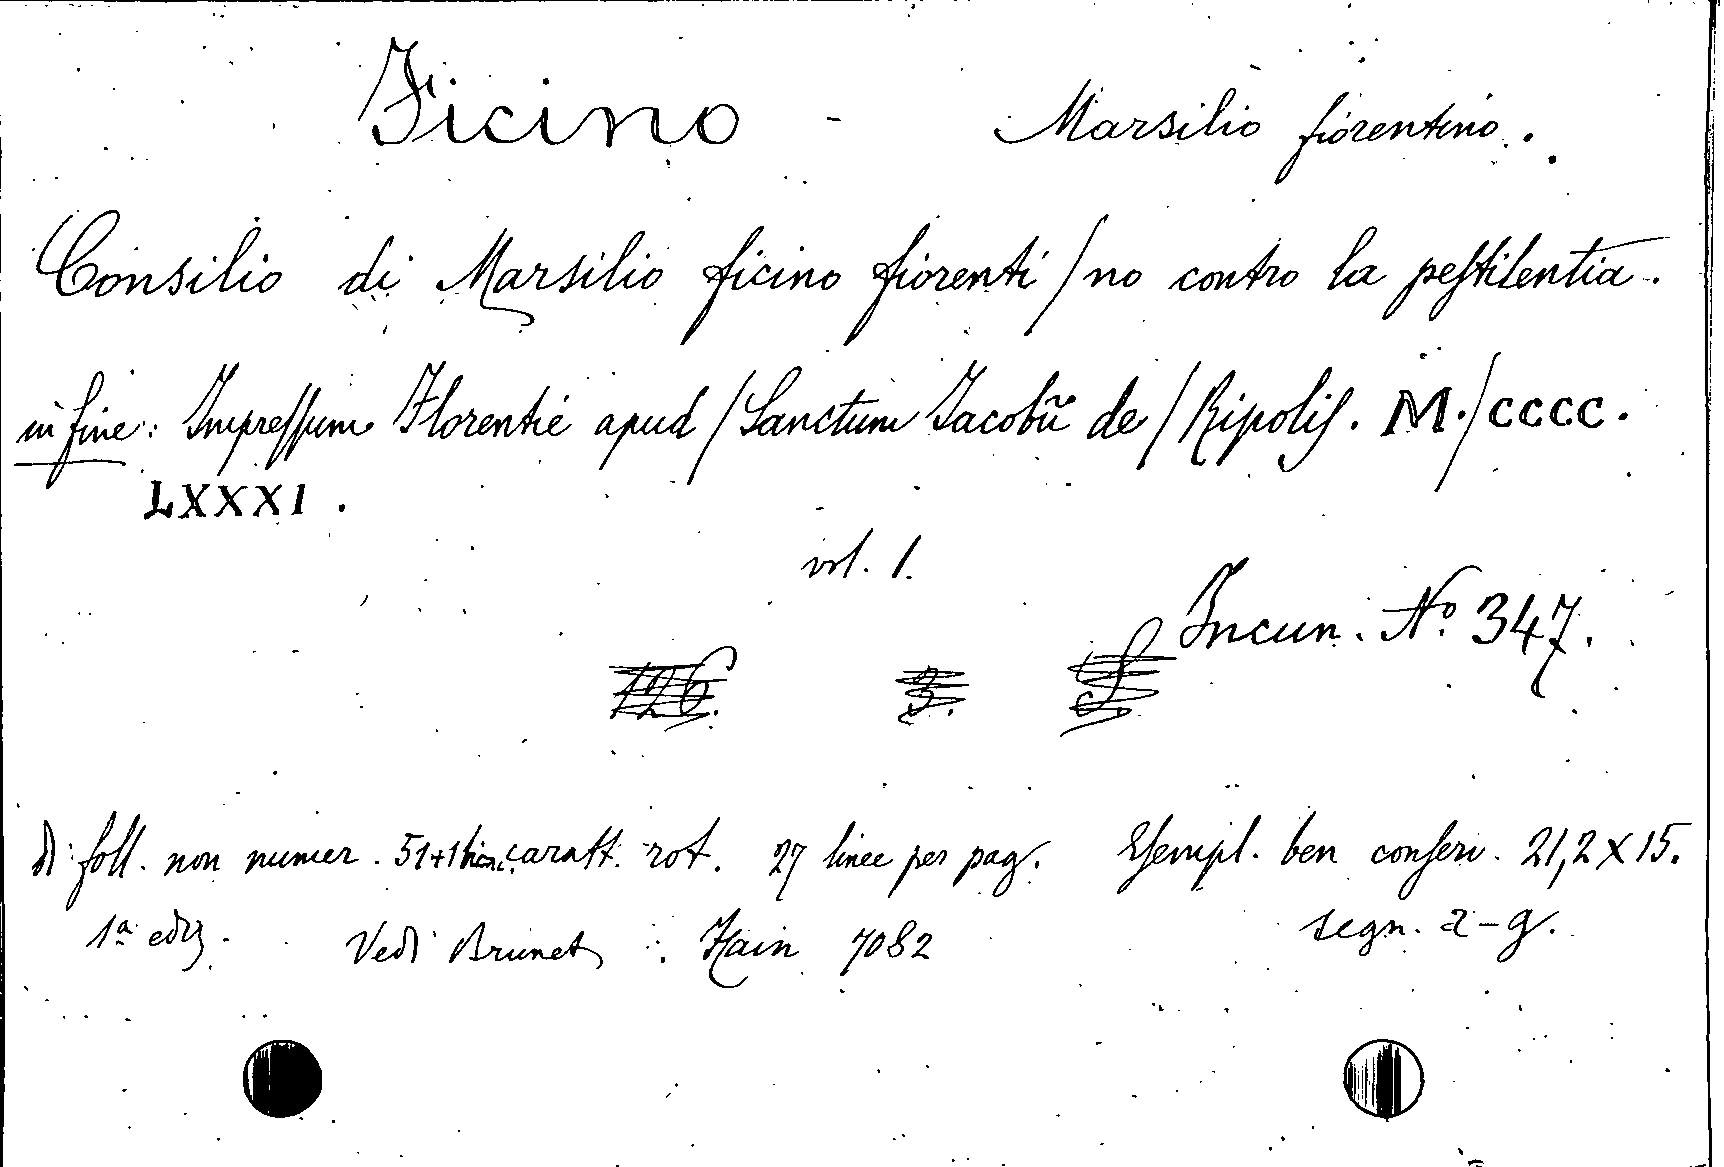 Ficino - Marsilio fiorentino.
Consilio di Marsilio ficino fiorenti/no contro la peſtilentia.
in fine: Impreſſum Florentie apud /Sanctum Jacobũ de /Ripoliſ. M./CCCC.
LXXXI.
vol. 1.
Incun. Nº 347.
126. 3.
di foll. non numer. 51+1bianc. caratt. rot. 27 linee per pag. Esempl. ben conserv. 21,2 X 15.
1ª ediz. Vedi Brunet : Hain 7082 segn. a-g.